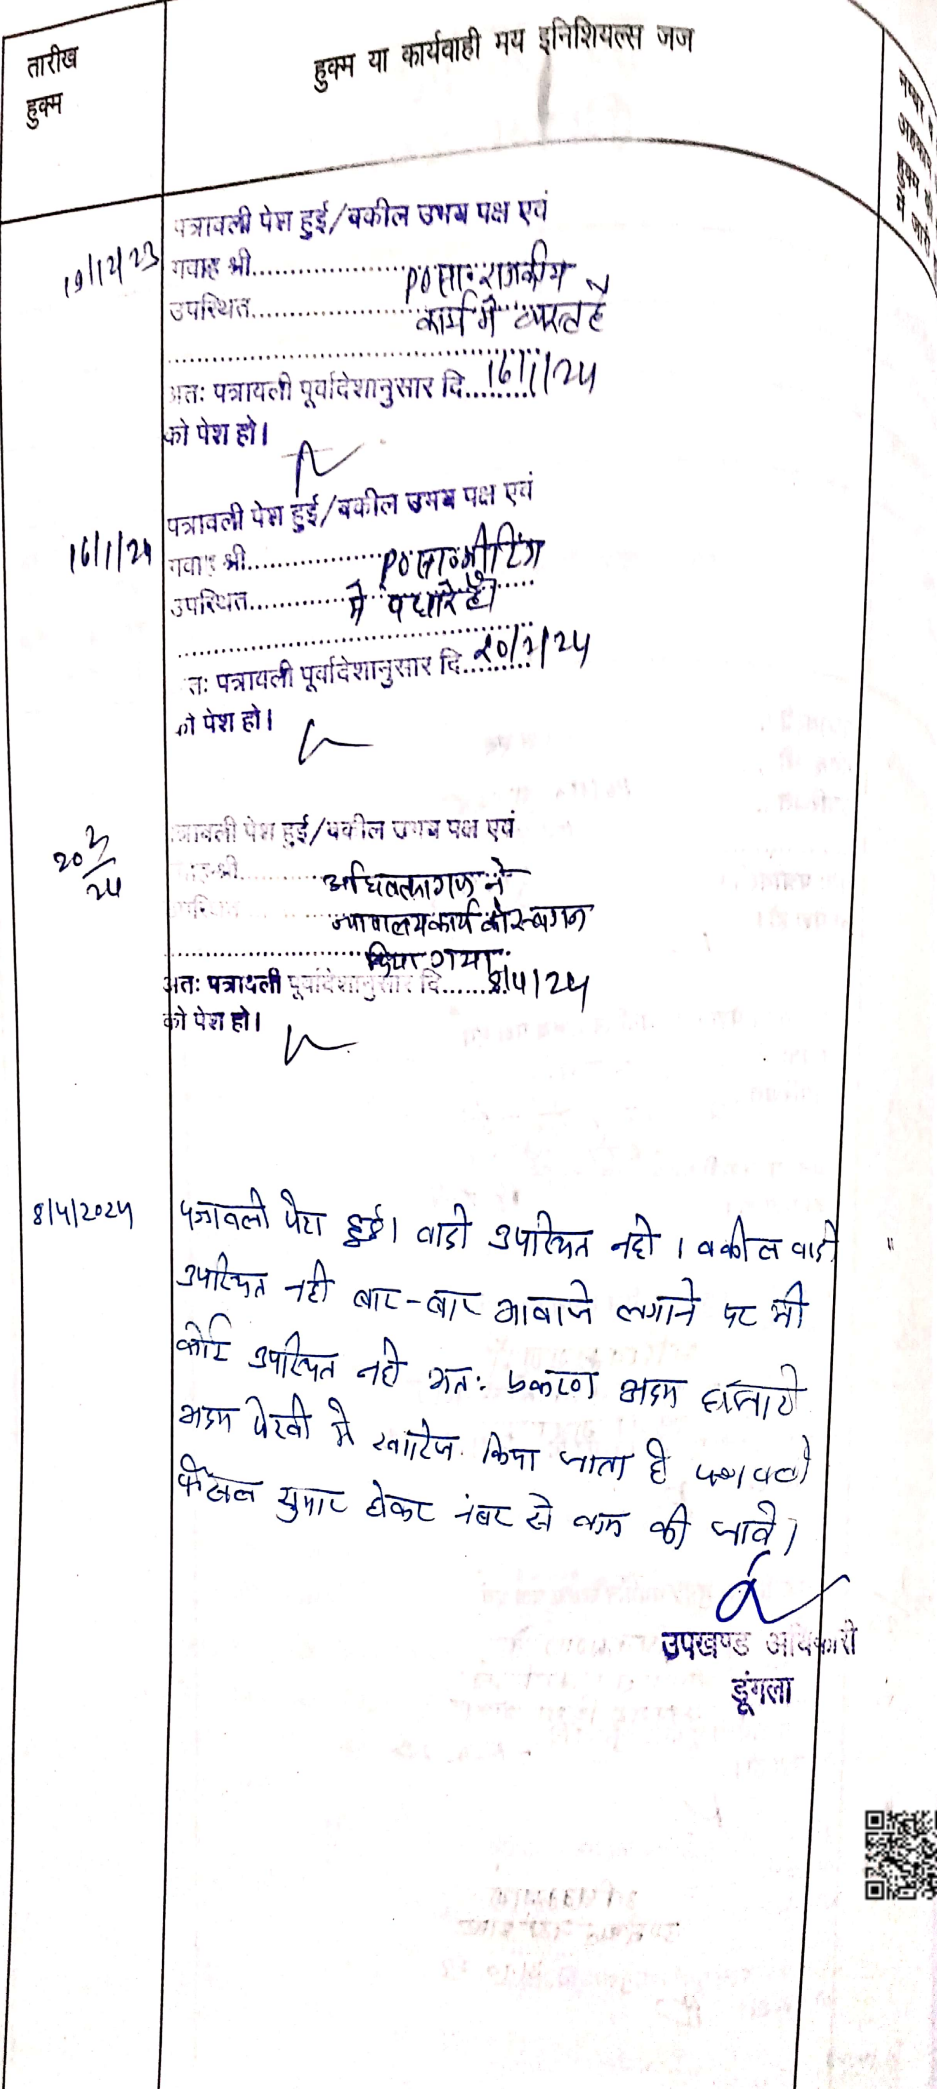 तारीख
हुक्म
हुक्म या कार्यवाही मय इनिशियल्स जज
नम्बर
हुक्म
में जारी
19/12/23
पत्रावली पेश हुई/वकील उभय पक्ष एवं
गवाह श्री.................... PO सा० राजकीय
उपस्थित.................... कार्य में व्यस्त है
अतः पत्रावली पूर्वादेशानुसार दि..16/1/24
को पेश हो।
16/1/24
पत्रावली पेश हुई/वकील उभय पक्ष एवं
गवाह श्री.................... PO सा० मीटिंग
उपस्थित............ में पधारे है।
तः पत्रावली पूर्वादेशानुसार दि..20/2/24
को पेश हो।
20/2/24
त्रावली पेश हुई/वकील उभय पक्ष एवं
अधिवक्तागण ने
न्यायालय कार्य को स्थगन
किया गया
अतः पत्रावली पूर्वादेशानुसार दि......8/4/24
को पेश हो।
8/4/2024
पत्रावली पेश हुई। वादी उपस्थित नही। वकील वादी
उपस्थित नही बार-बार आवाजे लगाने पर भी
कोई उपस्थित नही अतः प्रकरण अदम हाजरी
अदम पेरवी मे खारिज किया जाता है पत्रावली
फैसल सुमार होकर नंबर से कम की जावे।
उपखण्ड अधिकारी
डूंगला